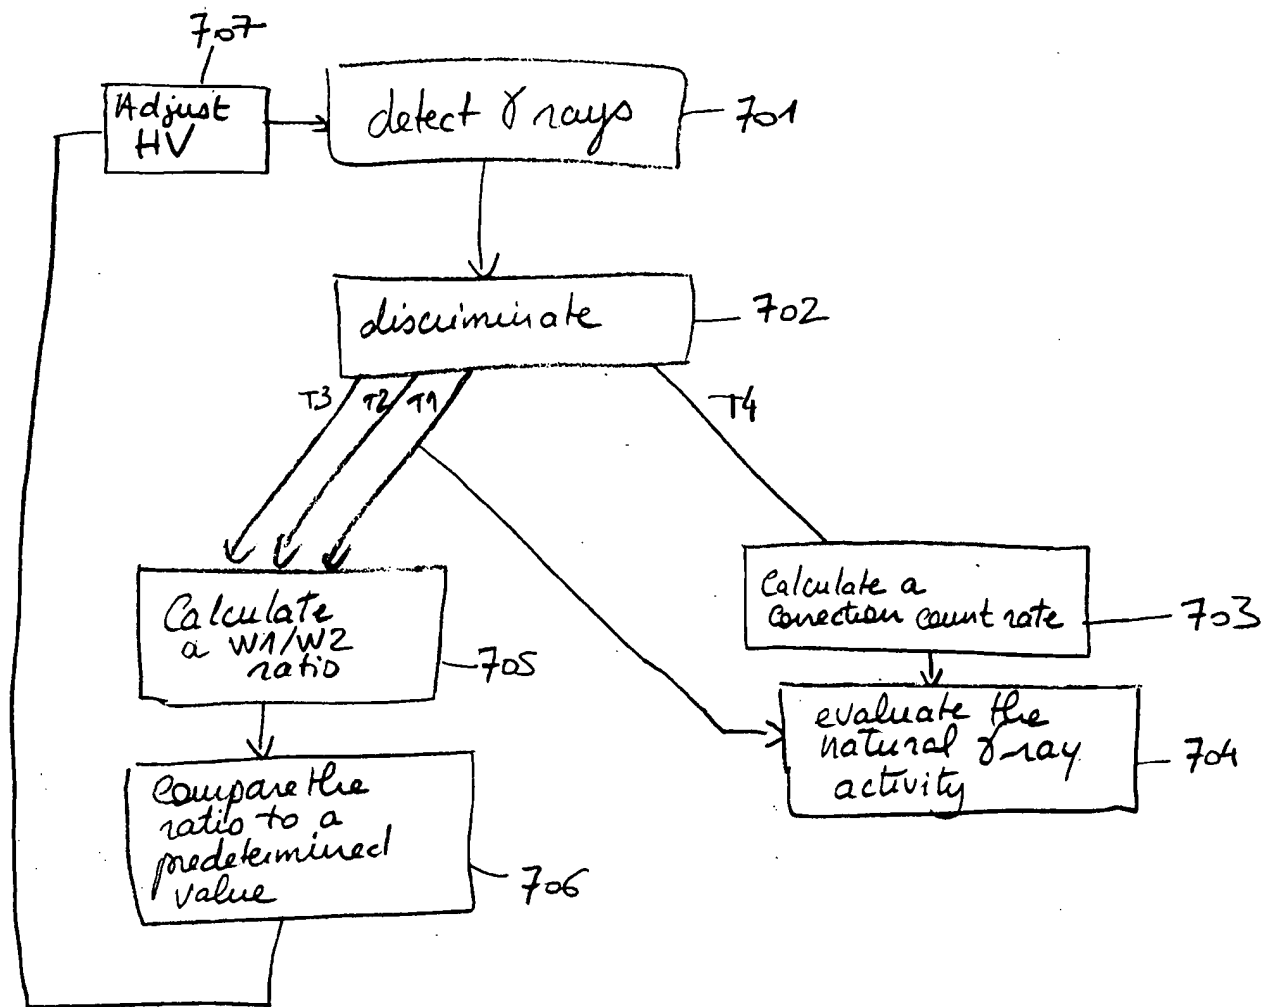 707
Adjust
HV
detect γ rays
701
discriminate
702
T3
T2
T1
T4
Calculate
a W1/W2
ratio
705
Calculate a
correction count rate
703
evaluate the
natural γ ray
activity
704
Compare the
ratio to a
predetermined
value
706